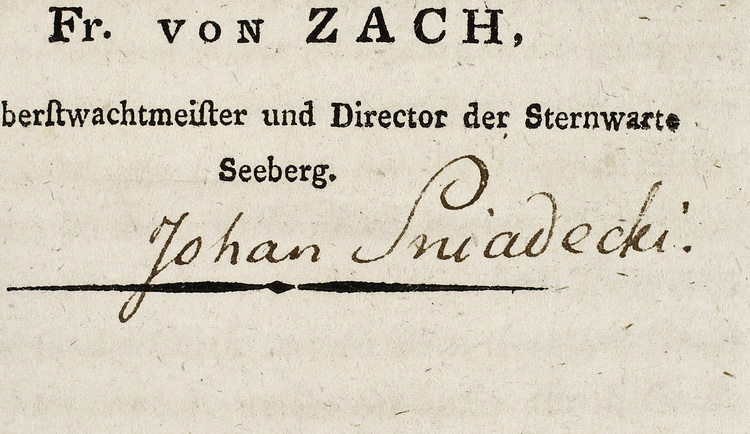 Fr. VON ZACH,
berſtwachtmeiſter und Director der Sternwarte
Seeberg.
Johan Sniadecki.